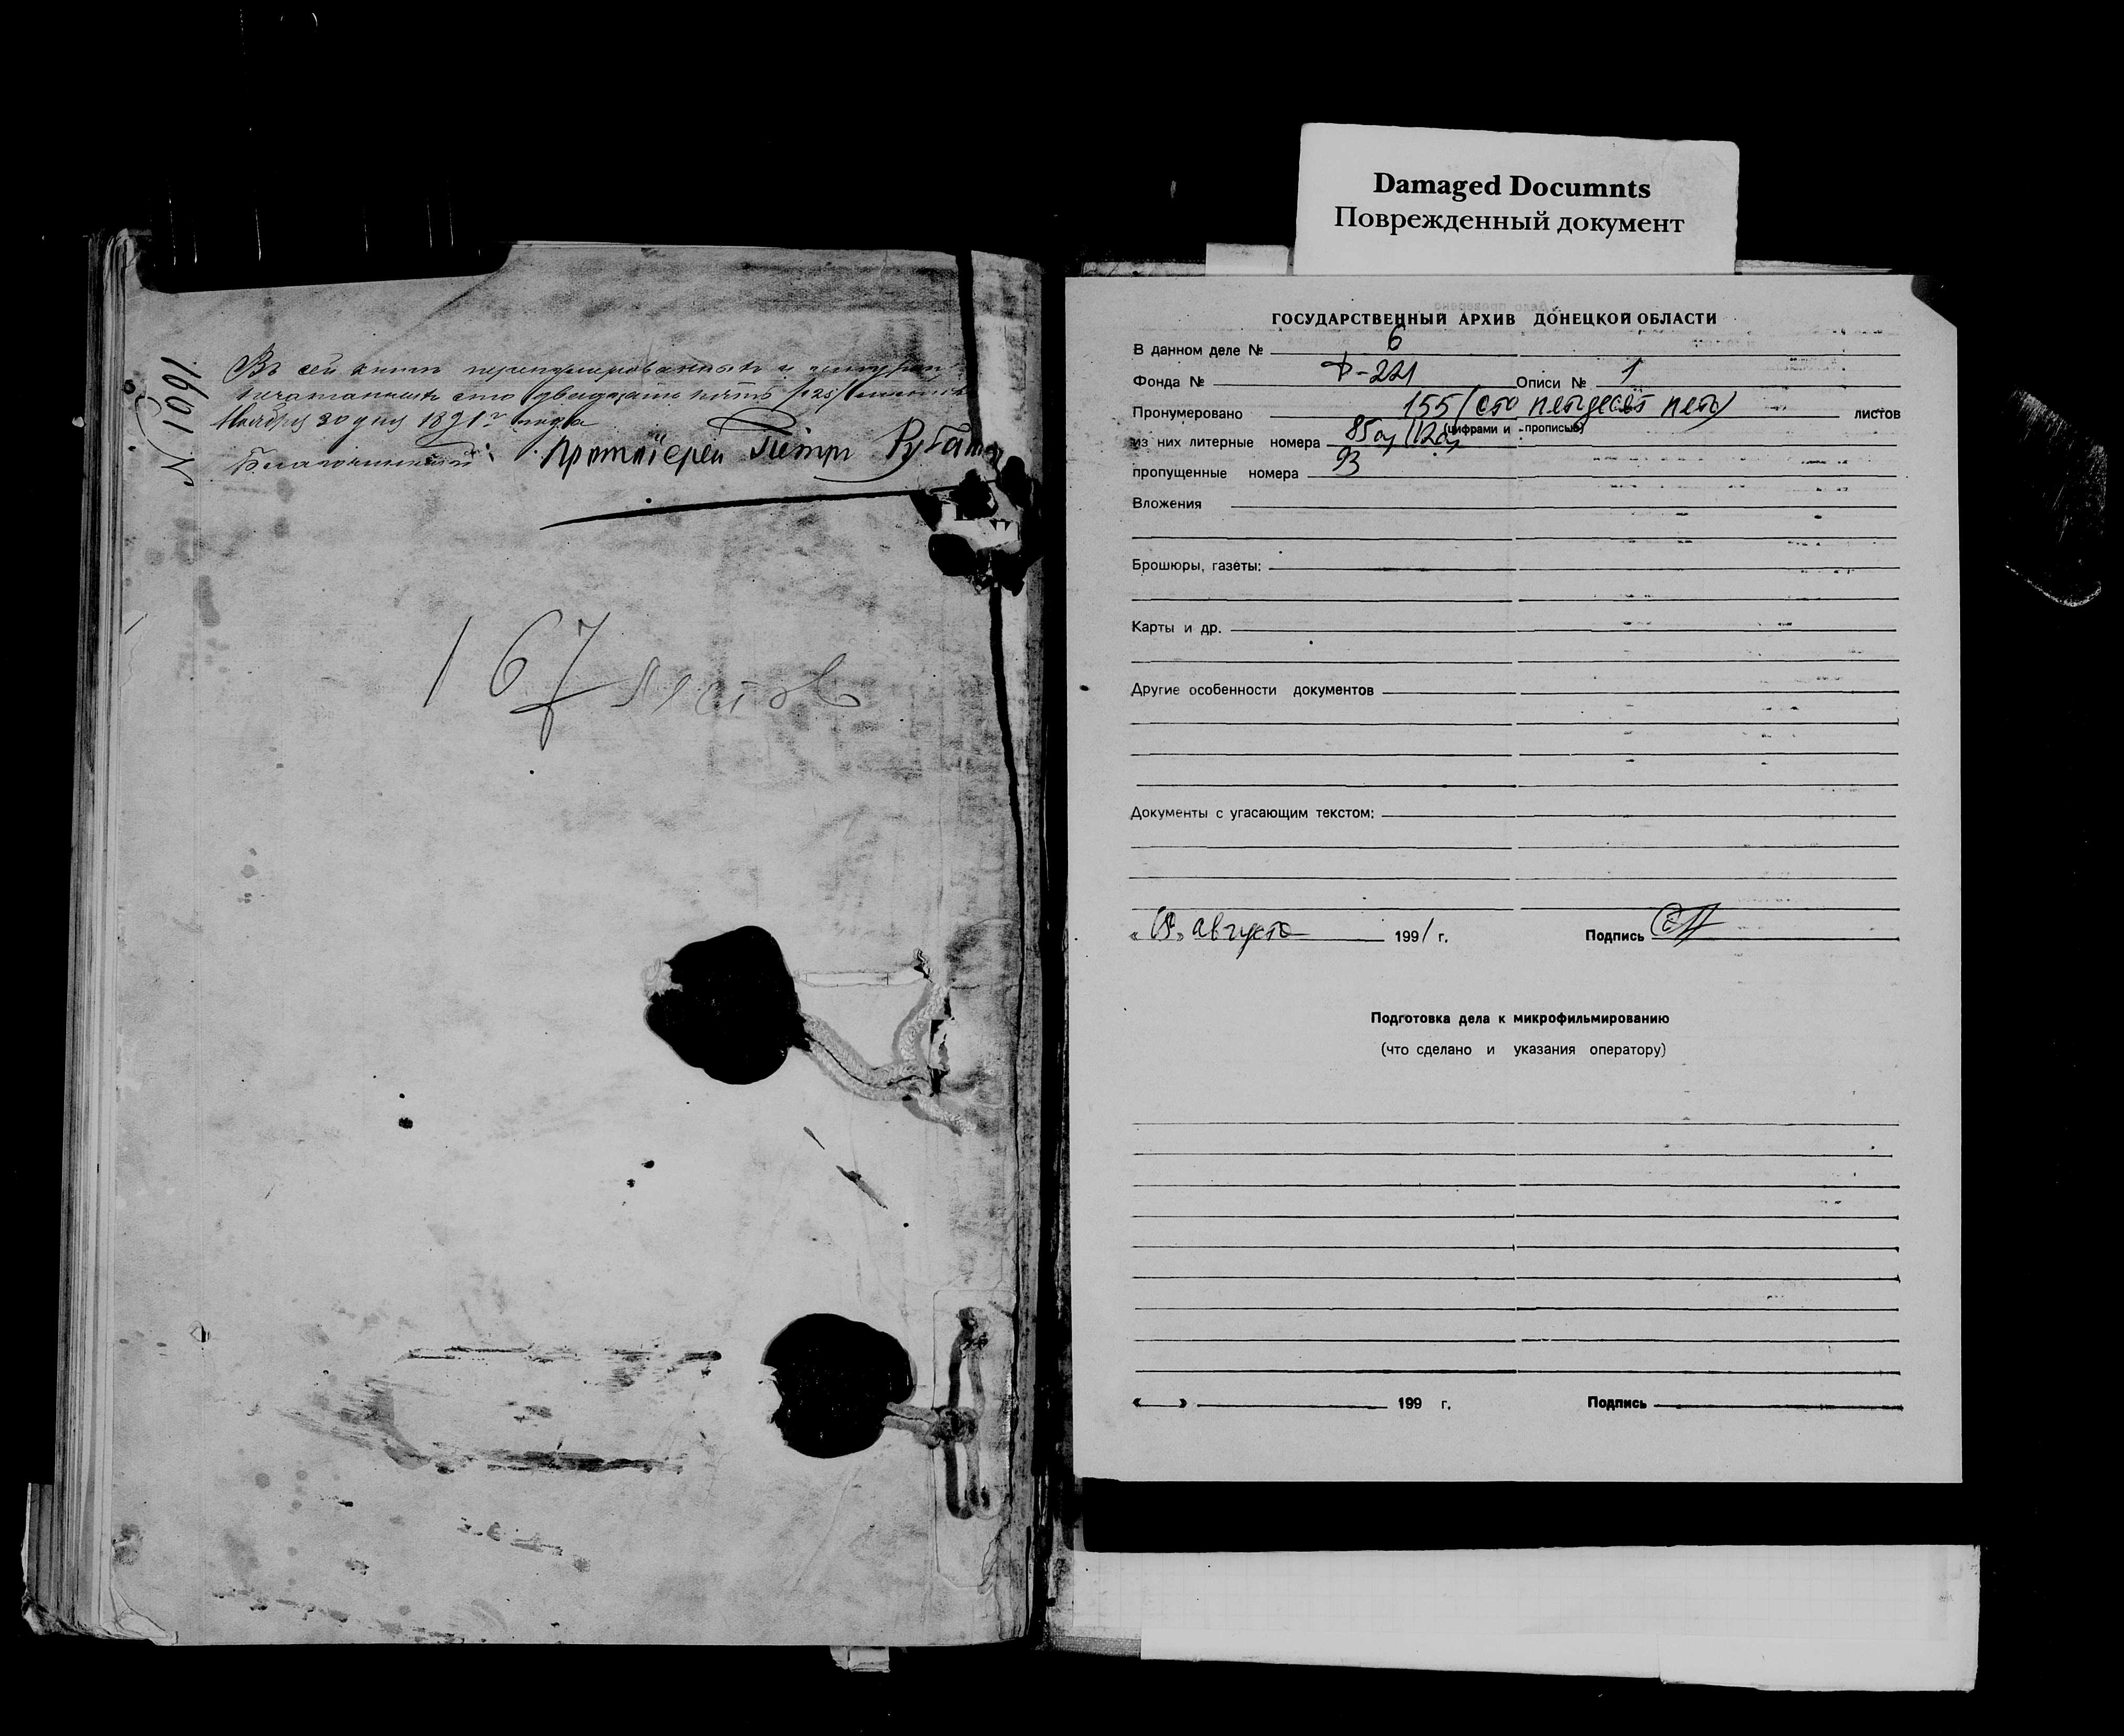 Damaged Documnts
Поврежденный документ
№ 1991
Въ сей книгѣ
сто двадцать пять /125/
Ноября 30 дня 1891 г. года
Благочинный: Протоіерей Петръ
167 листов
ГОСУДАРСТВЕННЫЙ АРХИВ ДОНЕЦКОЙ ОБЛАСТИ
В данном деле № 6
Фонда № Ф-221 Описи № 1
Пронумеровано 155 (сто пятьдесят пять) листов
(цифрами и прописью)
из них литерные номера 85а, 112а,
пропущенные номера 93
Вложения
Брошюры, газеты:
Карты и др.
Другие особенности документов
Документы с угасающим текстом:
августа 1991 г. Подпись
Подготовка дела к микрофильмированию
(что сделано и указания оператору)
« » 199 г. Подпись